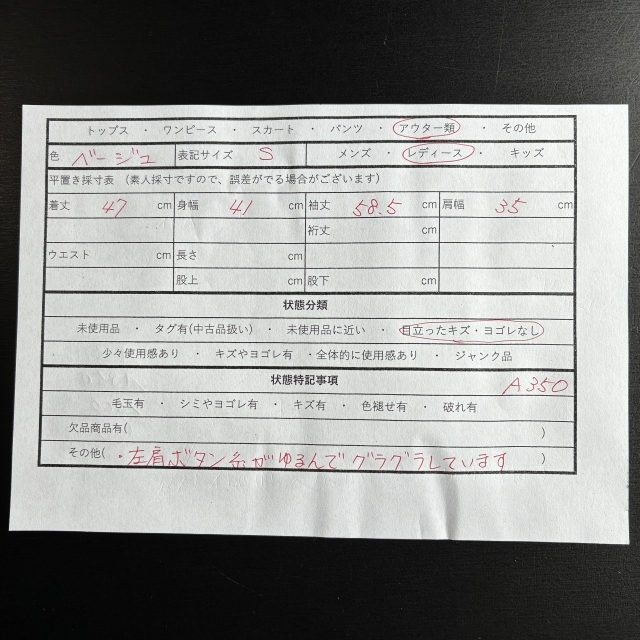 トップス ・ ワンピース ・ スカート ・ パンツ ・ アウター類 ・ その他
色 ベージュ 表記サイズ S メンズ ・ レディース ・ キッズ
平置き採寸表 (素人採寸ですので、誤差がでる場合がございます)
着丈 47 cm 身幅 41 cm 袖丈 58.5 cm 肩幅 35 cm
裄丈 cm
ウエスト cm 長さ cm
股上 cm 股下 cm
状態分類
未使用品 ・ タグ有(中古品扱い) ・ 未使用品に近い ・ 目立ったキズ・ヨゴレなし
少々使用感あり ・ キズやヨゴレ有 ・全体的に使用感あり ・ ジャンク品
状態特記事項 A350
毛玉有 ・ シミやヨゴレ有 ・ キズ有 ・ 色褪せ有 ・ 破れ有
欠品商品有( )
その他( ・左肩ボタン糸がゆるんでグラグラしています )